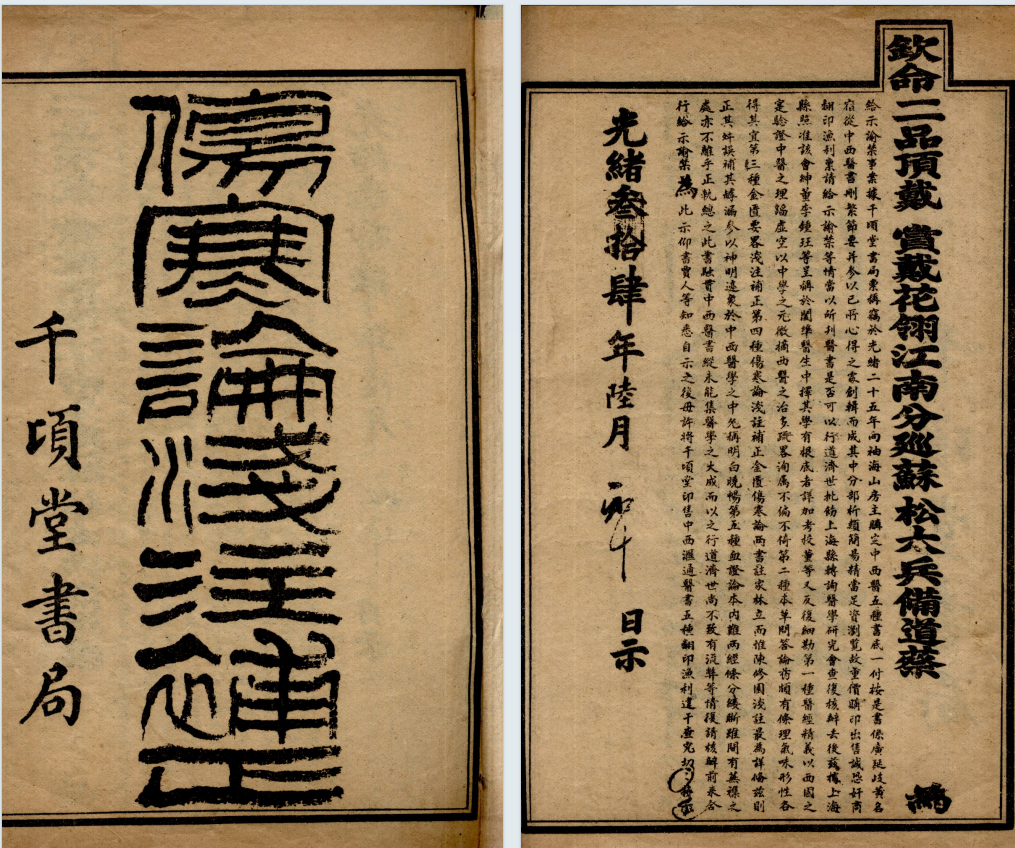 欽命二品頂戴 賞戴花翎江南分巡蘇松太兵備道蔡 為
給示諭禁事案據千頃堂書局稟稱竊於光緒二十五年向袖海山房主購定中西醫五種書底一付按是書係廣延岐黃名
宿從中西醫書刪繁節要并參以己所心得之象創輯而成其中分部析類簡易精當足資瀏覽故重價購印出售誠恐奸商
翻印漁利稟請給示諭禁等情當以所刊醫書是否可以行道濟世批飭上海縣轉詢醫學研究會查復核辦去後茲據上海
縣照准該會紳董李鍾珏等呈稱於閣準醫生中擇其學有根底者詳加考校董等又反復細勘第一種醫經精義以西國之
定驗證中醫之理蹈虛空以中學之元微摘西醫之治多疏畧洵屬不偏不倚第二種本草問答論藥頗有條理氣味形性各
得其宜第三種金匱要畧淺注補正第四種傷寒論淺註補正金匱傷寒論兩書註家林立而惟陳修園淺註最為詳備茲則
正其奸誤補其罅漏參以神明遠象於中西醫學之中允稱明白曉暢第五種血證論本內難兩經條分縷晰雖間有蕪襍之
處亦不離乎正軌總之此書融貫中西醫書縱未能集醫學之大成而以之行道濟世尚不致有流弊等情復請核辦前來合
行給示諭禁為此示仰書賈人等知悉自示之後毋許將千頃堂印售中西滙通醫書五種翻印漁利違干查究切切特示
光緒叁拾肆年陸月 日示
傷寒論淺注補正
千頃堂書局